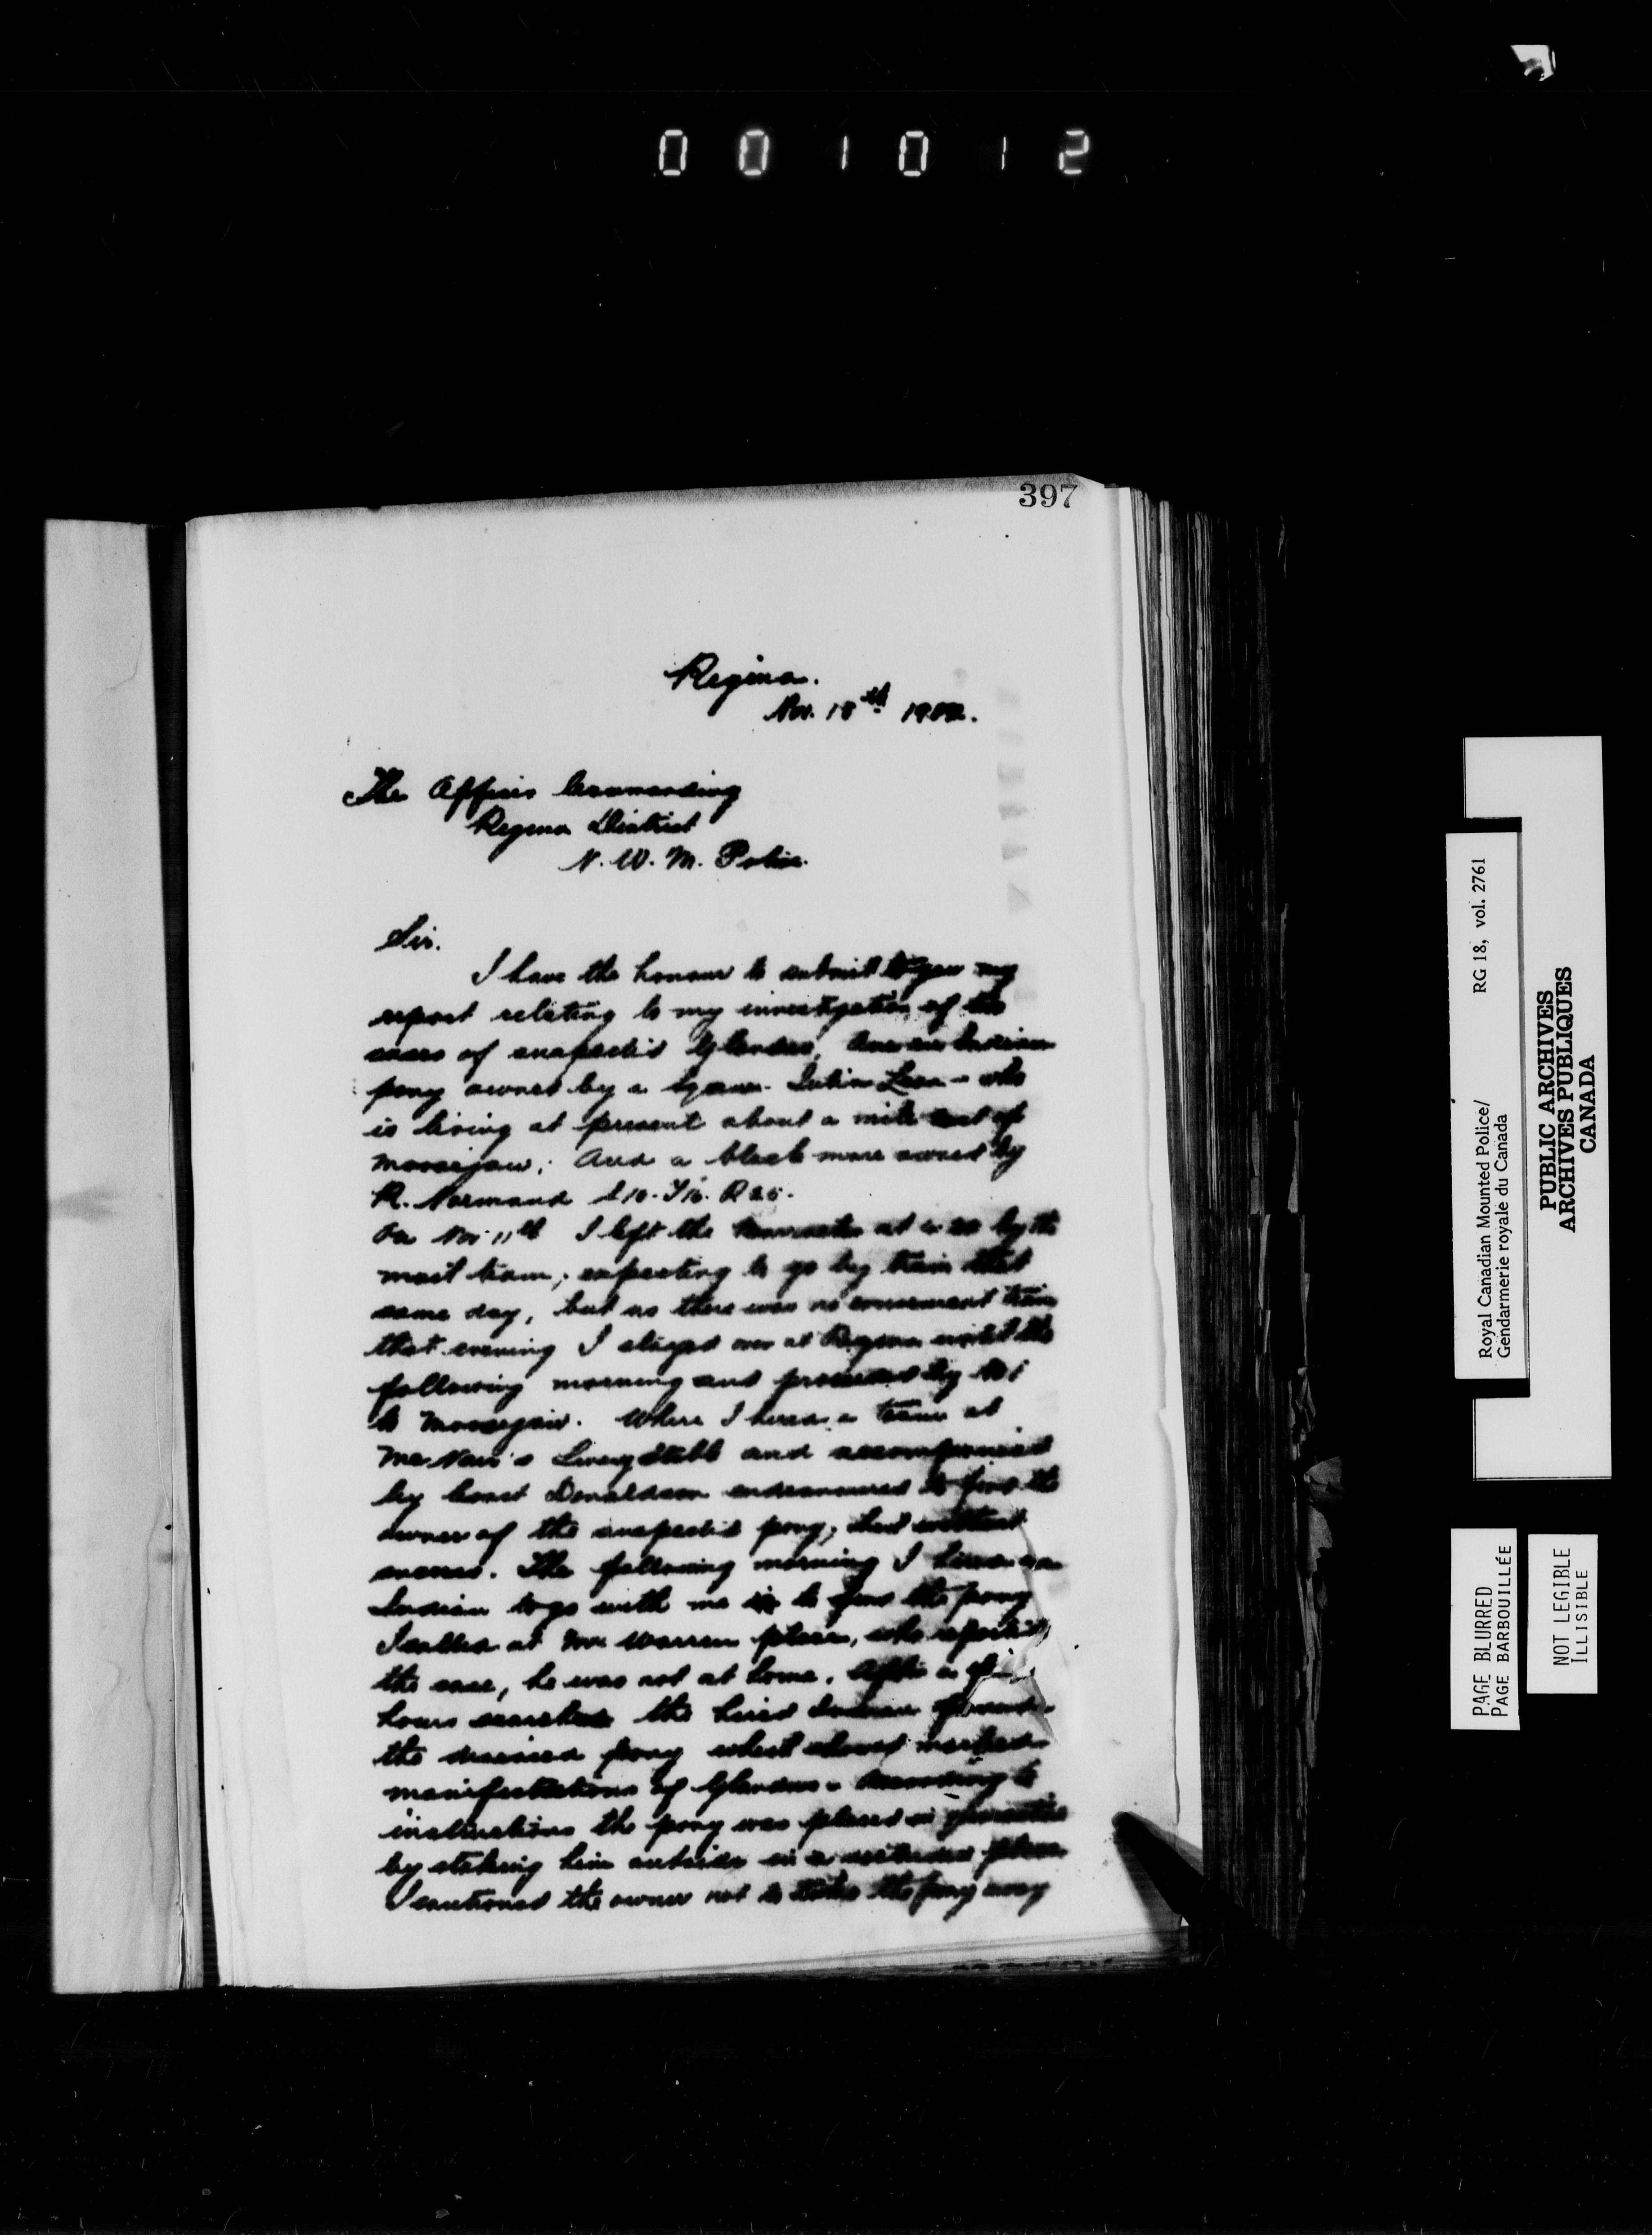 001012
397
Regina.
Nov. 18th 1902.
The Officer Commanding
Regina District
N. W. M. Police.
Sir.
I have the honour to submit to you my
report relating to my investigation of two
cases of suspected Glanders, One an Indian
pony owned by a who
is living at present about a mile of
Moosejaw; And a black mare owned by
R. Normand S 10. T 16. R 25.
On Nov 11th I left the at by the
mail team; expecting to go by train that
same day, but as there was no convenient train
that evening I stayed over at Regina until the
following morning and proceeded by No 1
to Moosejaw. Where I hired a team at
McNair's Livery Stable and accompanied
by Const Donaldson endeavoured to find the
owner of the suspected pony, but without
success. The following morning I hired an
Indian to go with me to find the pony
I called at Mr Warren place, who reported
the case, he was not at home. After a
hours search the hired Indian found
the diseased pony which showed marked
manifestations of Glanders. According to
instructions the pony was placed in quarantine
by staking him outside in a secluded place
I cautioned the owner not to take the pony away
Royal Canadian Mounted Police/
Gendarmerie royale du Canada
RG 18, vol. 2761
PUBLIC ARCHIVES
ARCHIVES PUBLIQUES
CANADA
PAGE BLURRED
PAGE BARBOUILLÉE
NOT LEGIBLE
ILLISIBLE